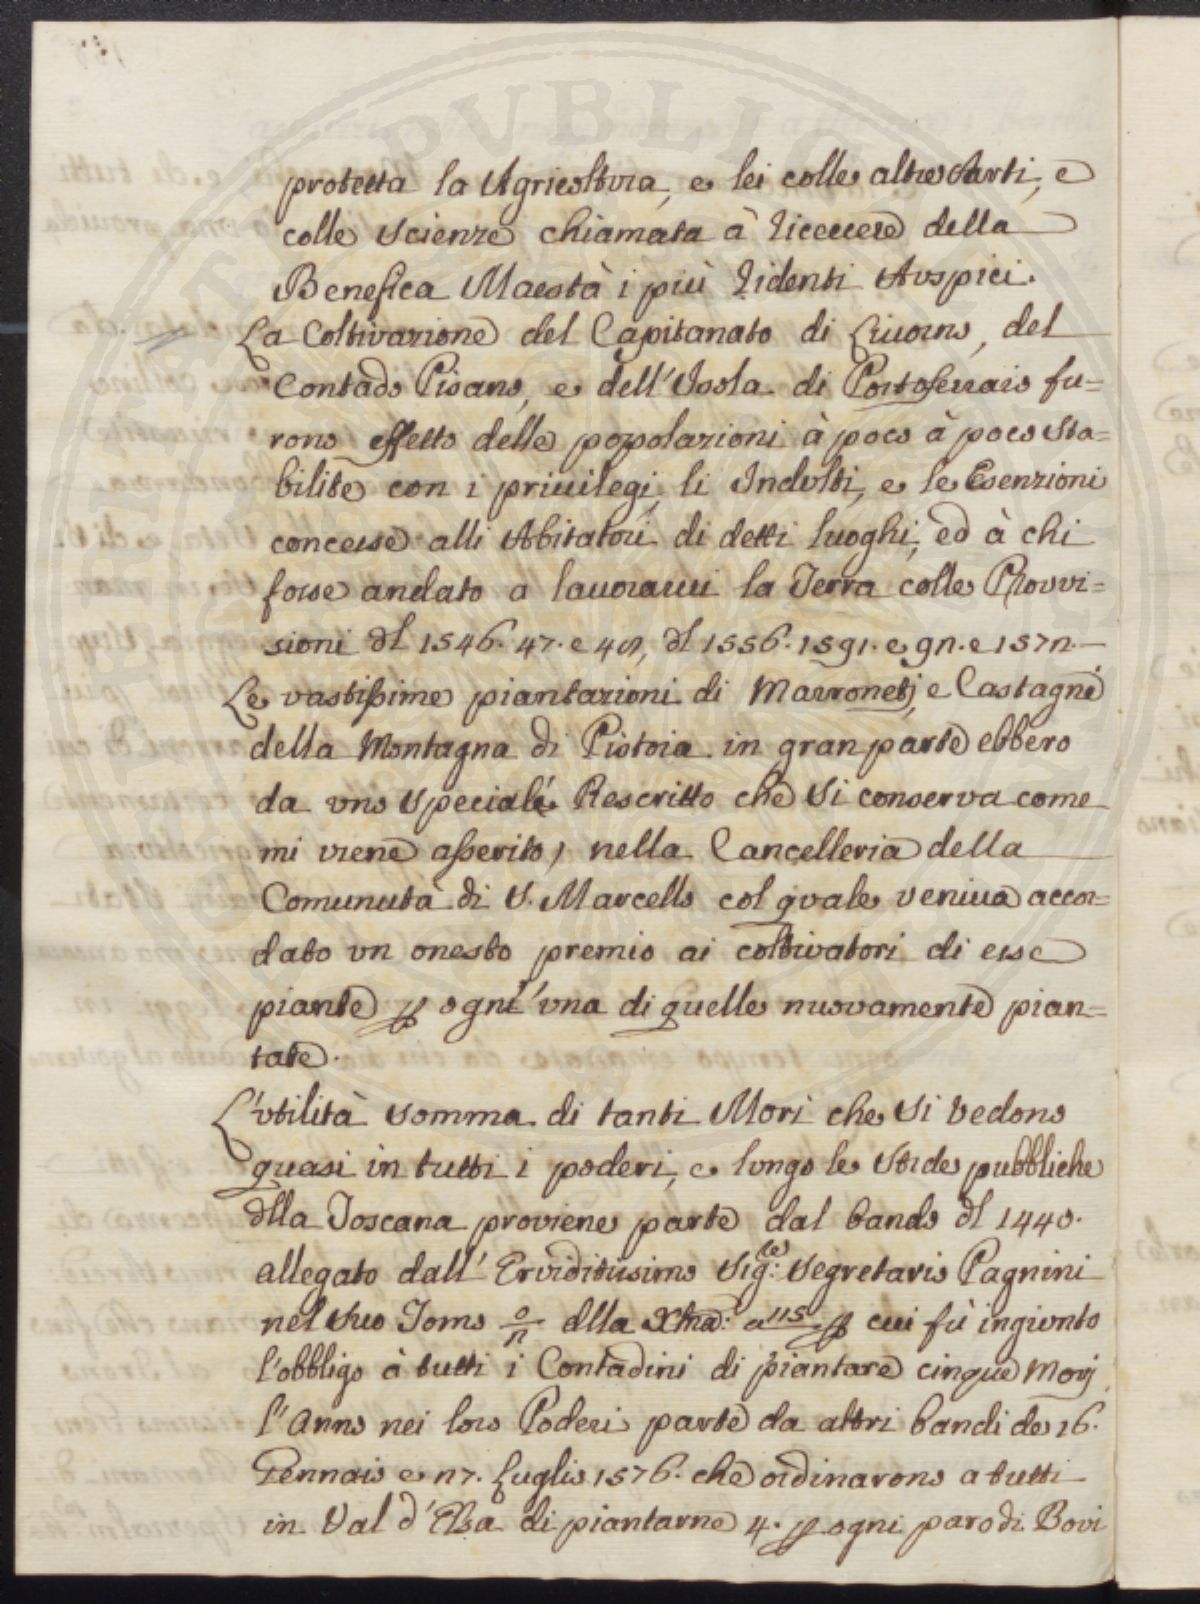 protetta la Agricoltura, e lei colle altre Arti, e
colle Scienze chiamata à ricevere della
Benefica Maestà i più ridenti Auspici.
La Coltivazione del Capitanato di Livorno, del
Contado Pisano, e dell'Isola di Portoferraio fu=
rono effetto delle popolazioni à poco à poco sta=
bilite con i privilegi, li Indulti, e le Esenzioni
concesse alli Abitatori di detti luoghi, ed à chi
fosse andato a lavorarvi la Terra colle Provvi=
sioni dl 1546. 47. e 48, dl 1556. 1591. e 92. e 1572.
Le vastissime piantazioni di Marronetj, e Castagne
della Montagna di Pistoia in gran parte ebbero
da uno Speciale Rescritto che si conserva come
mi viene asserito, nella Cancelleria della
Comunutà di S. Marcello col quale veniva accor=
dato un onesto premio ai coltivatori di esse
piante p ogni'una di quelle nuovamente pian=
tate.
L'utilità somma di tanti Mori che si vedono
quasi in tutti i poderi, e lungo le Strde pubbliche
dlla Toscana proviene parte dal bando dl 1440.
allegato dall' Eruditissimo Sig:re Segretario Pagnini
nel suo Tomo 2 dlla a 115 p cui fù ingiunto
l'obbligo à tutti i Contadini di piantare cinque Morj
l'Anno nei loro Poderi parte da altri bandi de 16.
Gennaio e 27. Luglio 1576. che ordinarono a tutti
in Val d'Elsa di piantarne 4. p ogni paro di Bovi